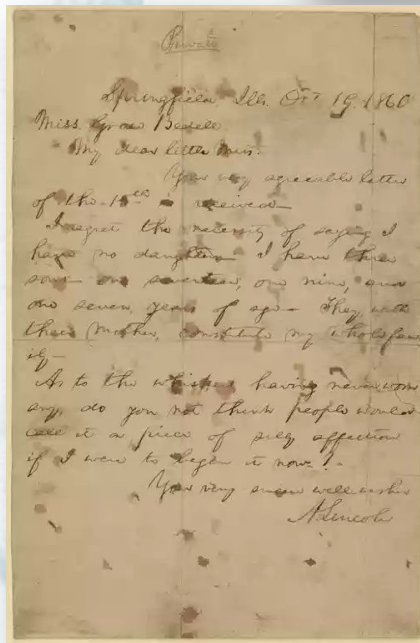 Private
Springfield, Ills. Oct 19. 1860
Miss Grace Bedell
My dear little Miss.
Your very agreeable letter
of the 15th is received—
I regret the necessity of saying I
have no daughters— I have three
sons— one seventeen, one nine, and
one seven, years of age— They, with
their mother, constitute my whole fam
ily—
As to the whiskers, having never worn
any, do you not think people would
call it a piece of silly affection
if I were to begin it now?
Your very sincere well-wisher
A. Lincoln